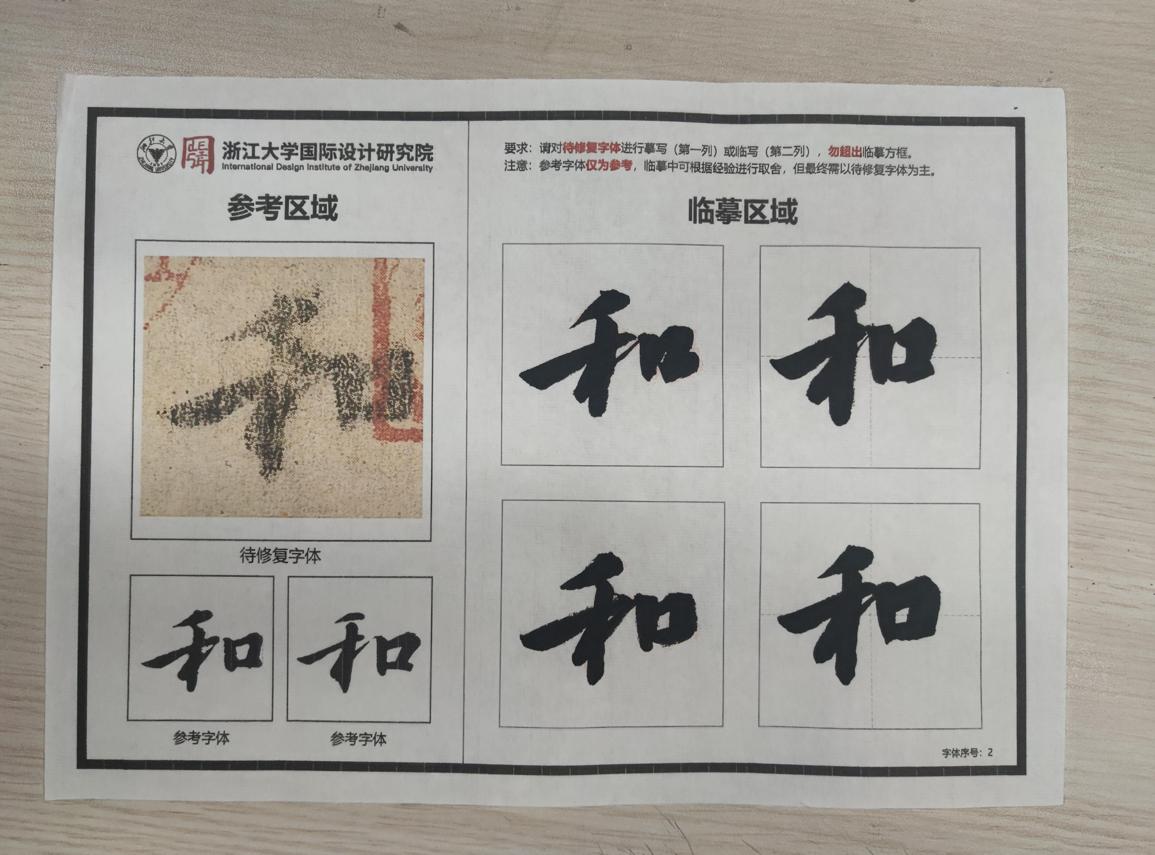 浙江大学国际设计研究院
International Design Institute of Zhejiang University
参考区域
和
待修复字体
和 和
参考字体 参考字体
要求：请对待修复字体进行摹写（第一列）或临写（第二列），勿超出临摹方框。
注意：参考字体仅为参考，临摹中可根据经验进行取舍，但最终需以待修复字体为主。
临摹区域
和 和
和 和
字体序号：2